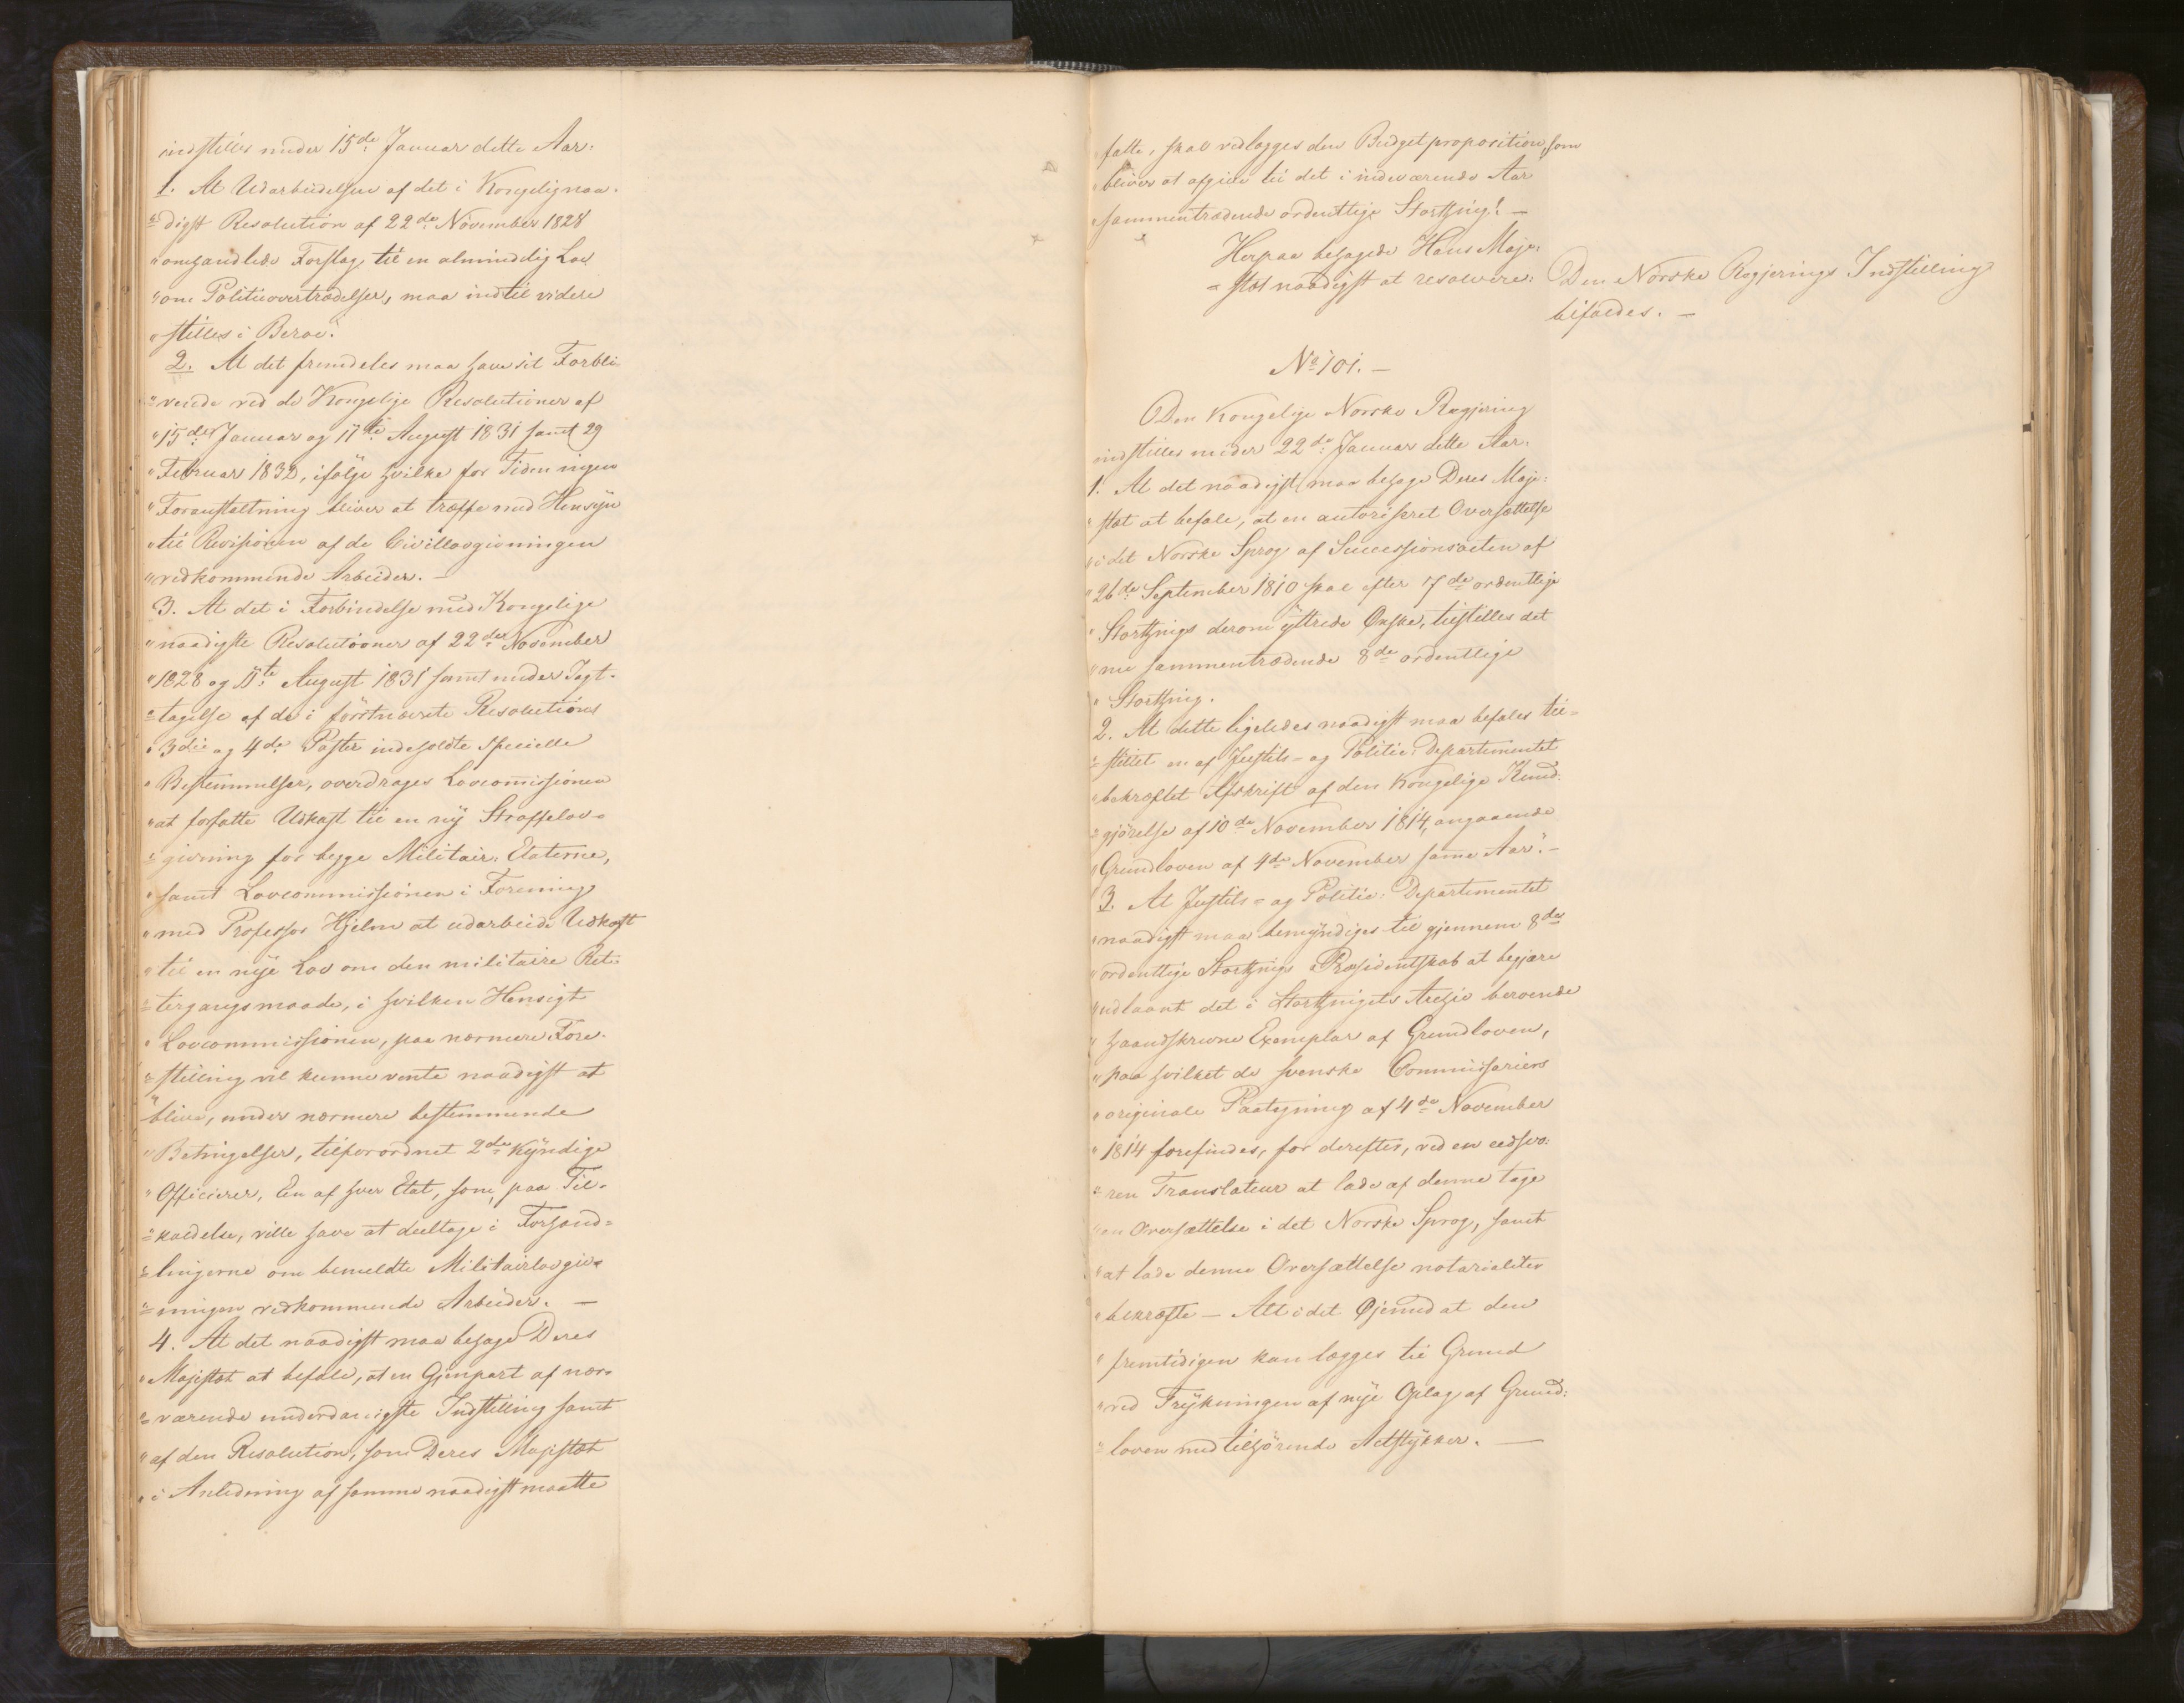 indstilles under 15de Januar dette Aar:
1. At Udarbeidelsen af det i Kongelig naa-
"digst Resolution af 22de November 1828
"omhandlede Forslag til en almindelig Lov
"om Politieovertrædelser, maa indtil videre
"stilles i Beroe.
2. At det fremdeles maa have sit Forbli-
"vende ved de Kongelige Resolutioner af
"15de Januar og 11te August 1831 samt 29
"Februar 1832, ifölge hvilke for Tiden ingen
"Foranstaltning bliver at træffe med Hensyn
"til Revisionen af de Civillovgivningen
"vedkommende Arbeider. —
3. At det i Forbindelse med Kongelige
"naadigste Resolutioner af 22de November
"1828 og 11te August 1831 samt under Iagt-
"tagelse af de i förstnævnte Resolutions
"3die og 4de Poster indeholdte specielle
"Bestemmelser, overdrages Lovcomissionen
"at forfatte Udkast til en ny Straffelov-
"givning for begge Militair-Etaterne,
"samt Lovcommissionen i Forening
"med Professor Hjelm at udarbeide Udkast
"til en nye Lov om den militaire Ret-
"tergangsmaade, i hvilken Hensigt
"Lovcommissionen, paa nærmere Fore-
"stilling vil kunne vente naadigst at
"blive, under nærmere bestemmende
"Betingelser, tilforordnet 2de kyndige
"Officierer, En af hver Etat, som, paa Til-
"kaldelse, ville have at deeltage i Forhand-
"lingerne om bemeldte Militairlovgiv-
"ningen vedkommende Arbeider. —
4. At det naadigst maa behage Deres
"Majestæt at befale, at en Gjenpart af nær-
"værende underdanigste Indstilling samt
"af den Resolution, som Deres Majestæt
"i Anledning af samme naadigst maatte
fatte, skal vedlægges den Budgetproposition, som
"bliver at afgive til det i indeværende Aar
"sammentrædende ordentlige Storthing". —
Herpaa behagede Hans Maje-
stæt naadigst at resolvere:
Den Norske Regjerings Indstilling
bifaldes. —
No 101. —
Den Kongelige Norske Regjering
indstiller under 22de Januar dette Aar:
1. At det naadigst maa behage Deres Maje-
"stæt at befale, at en autoriseret Oversættelse
"i det Norske Sprog af Successionsacten af
"26de September 1810 skal efter 7de ordentlige
"Storthings derom yttrede Ønske, tilstilles det
"nu sammentrædende 8de ordentlige
"Storthing.
2. At dette ligeledes naadigst maa befales til-
"stillet en af Justits- og Politie-Departementet
"bekræftet Afskrift af den Kongelige Kund-
"gjörelse af 10de November 1814, angaaende
"Grundloven af 4de November same Aar. —
3. At Justits- og Politie-Departementet
"naadigst maa bemyndiges til gjennem 8de
"ordentlige Storthings Præsidentskab at begjære
"udlaant det i Storthingets Archiv beroende
"haandskrevne Exemplar af Grundloven,
"paa hvilket de svenske Commissariers
"originale Paategning af 4de November
"1814 forefindes, for derefter, ved en edsvo-
"ren Translateur at lade af denne tage
"en Oversættelse i det Norske Sprog, samt
"at lade denne Oversættelse notarialiter
"bekræfte — Alt i det Øjemed at den
"fremtidigen kan lægges til Grund
"ved Trykningen af nye Oplag af Grund-
"loven med tilhörende Actstykker. —